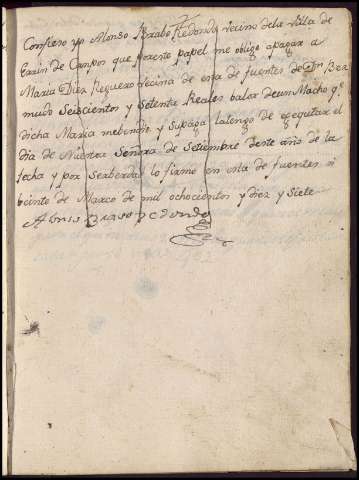 Confieso yo Alonso Brabo Redondo vecino dela villa de
Erun de Campos que por este papel me obligo apagar a
Maria Diez Requexo vecina de esta de fuentes de Dn Ber
mudo Seiscientos y Setenta Reales balor de un Macho qe
dicha Maria mebendio y Supaga latengo de egequtar el
dia de Nuestra Señora de Setiembre deste año de la
fecha y por ser berdad lo firmo en esta de fuentes a
beinte de Marco de mil ochocientos y diez y Siete
Alonso Brabo Redondo